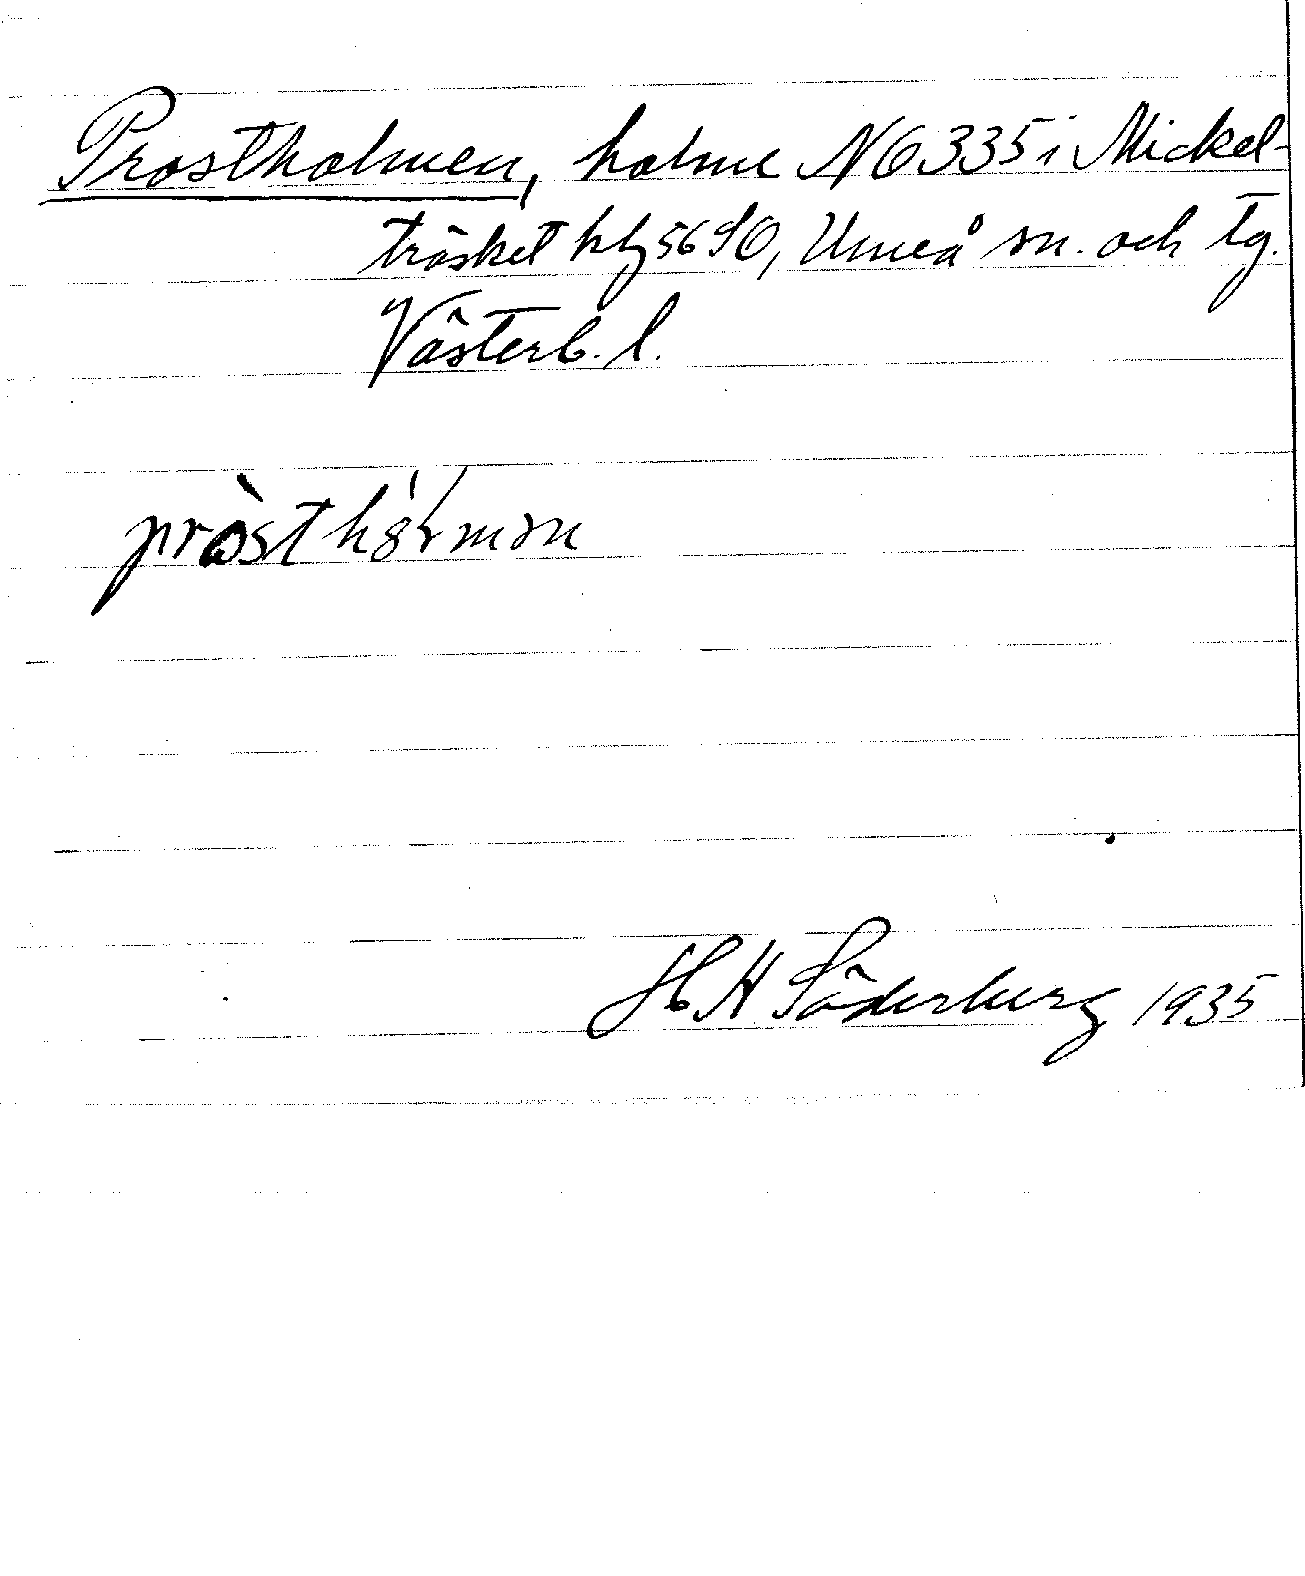 Prostholmen, holme N6335 i Mickel-
träsket kbl 56 SO, Umeå sn. och tg.
Västerb. l.
H H Söderberg 1935